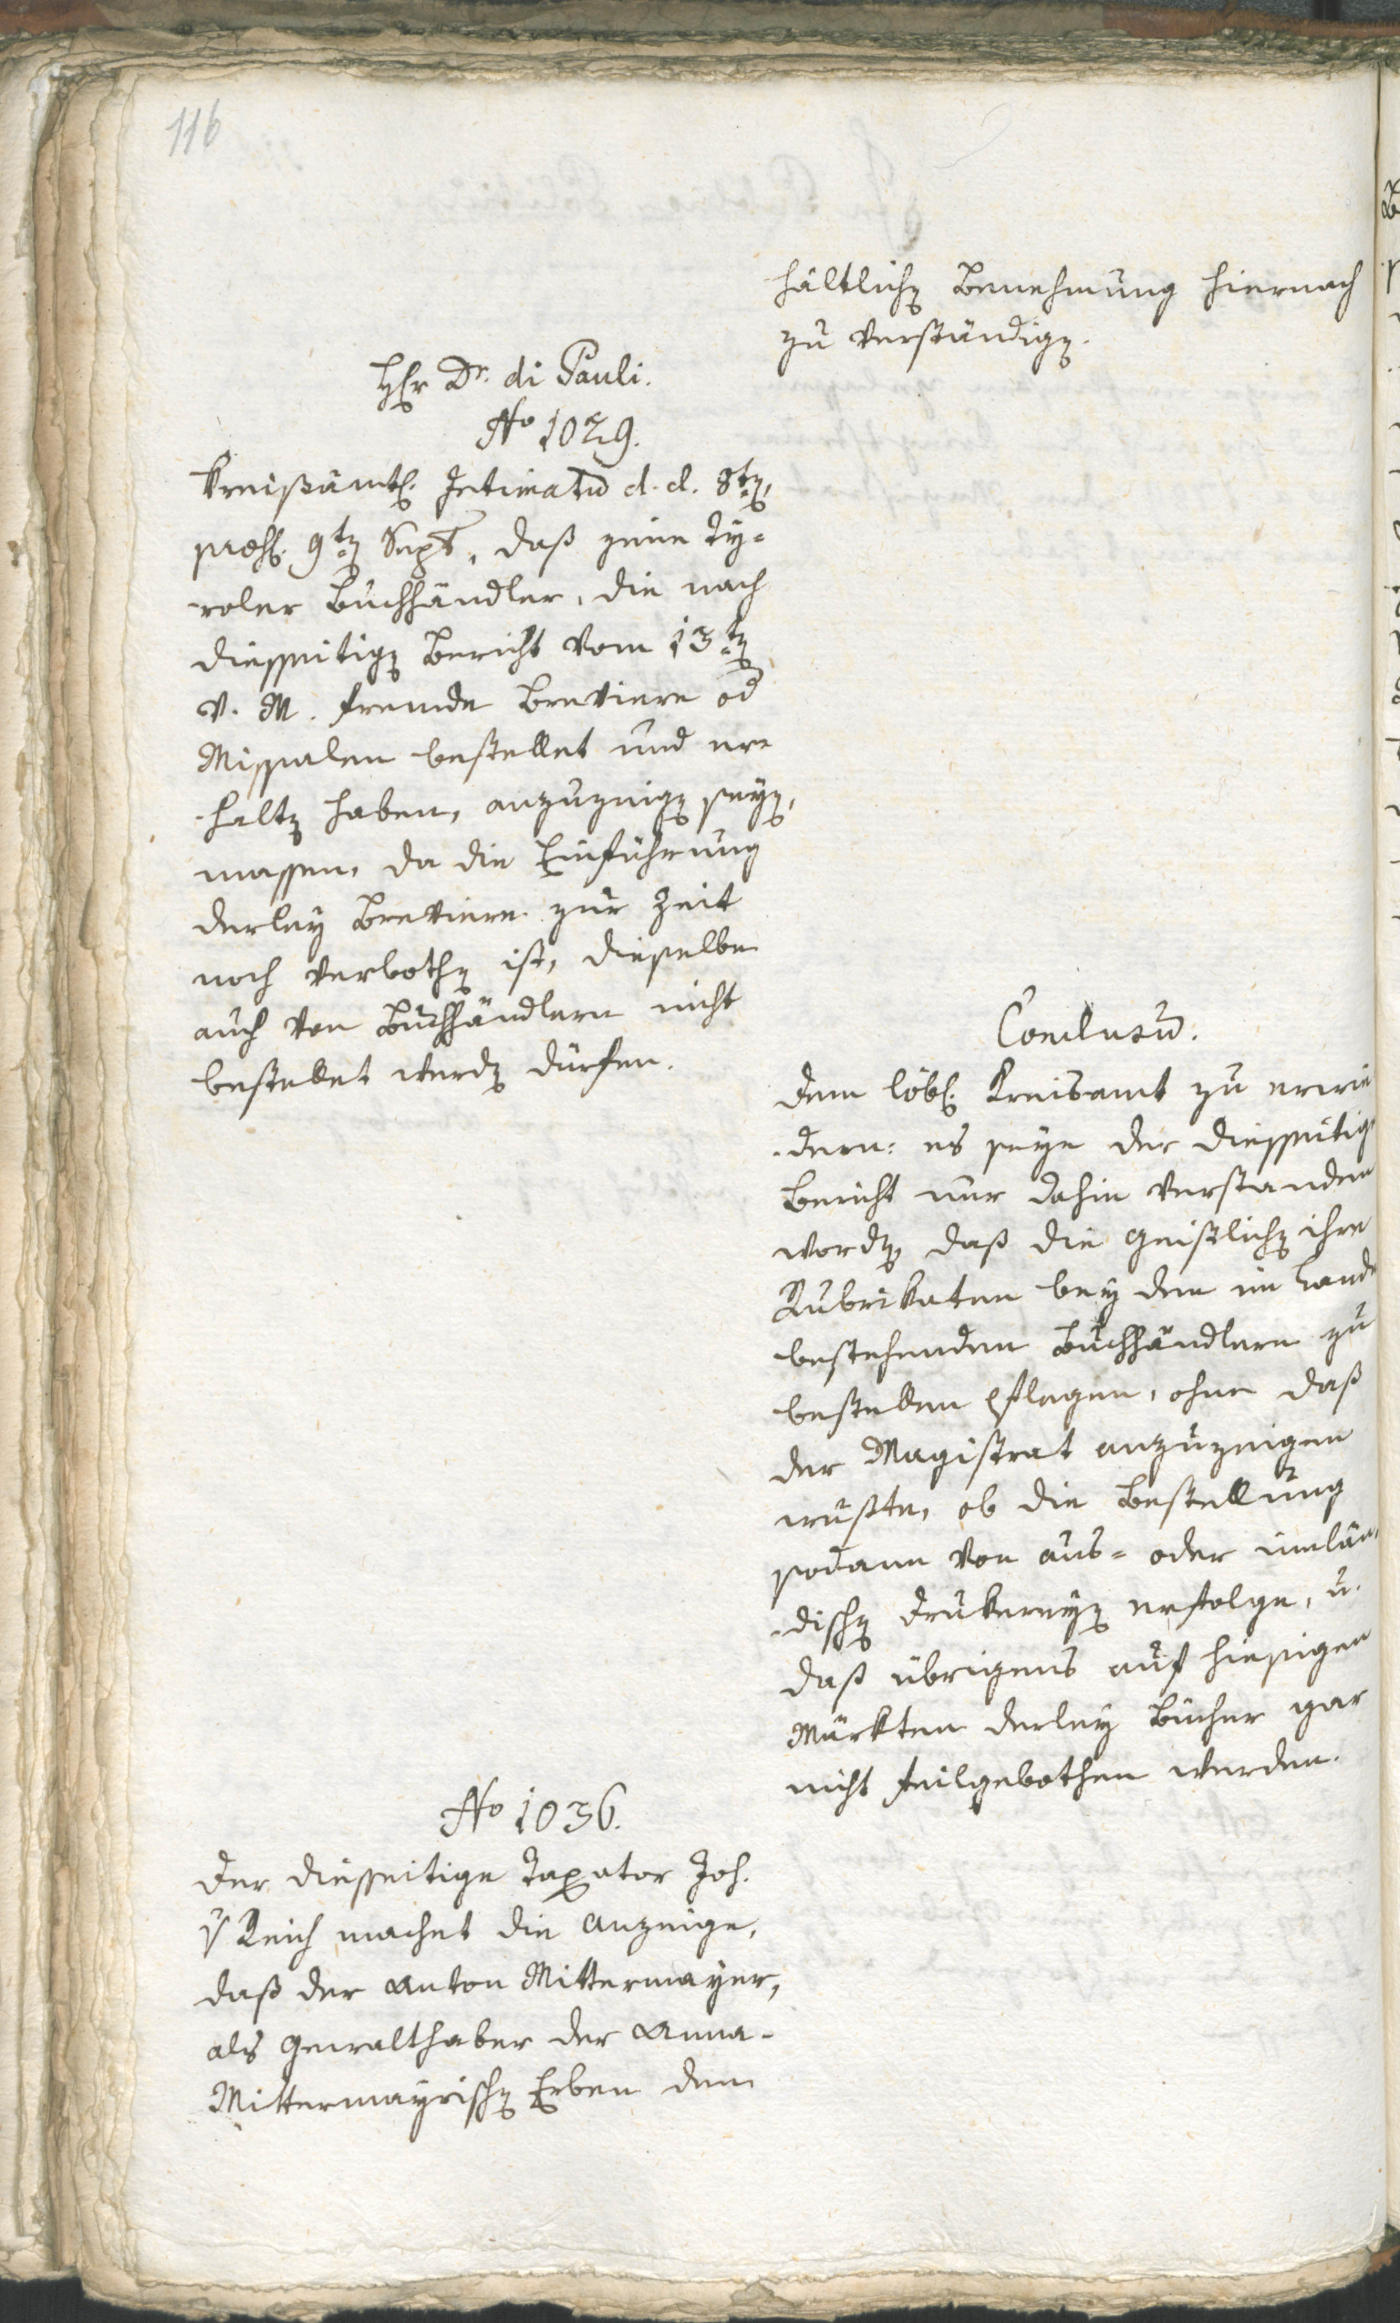 116
hältlichen Benehmung hiernach
zu verständigen.
Hr Dr. di Pauli.
No 1029.
Kreißämtl. Intimatum d. d. 8ten,
præs. 9ten Sept. daß jene Ty=
roler Buchhändler, die nach
diesseitigen Bericht vom 13ten
v. M. fremde Breviere od
Missalen bestellet und er=
halten haben, anzuzeigen seyen,
massen, da die Einführung
derley Breviere zur Zeit
noch verbothen ist, dieselbe
auch von Buchhändlern nicht
bestellet werden dürfen.
Conclusum.
Dem löbl. Kreisamt zu erwie
dern: es seye der diesseitige
Bericht nur dahin verstanden
worden, daß die Geistlichen ihre
Rubrikaten bey den im Lande
bestehenden Buchhändlern zu
bestellen pflegen, ohne daß
der Magistrat anzuzeigen
wußte, ob die Bestellung
sodann von aus= oder innlän=
dischen Drukereyen erfolge, u.
daß übrigens auf hiesigen
Märkten derley Bücher gar
nicht feilgebothen werden.
No 1036.
Der diesseitige Taxator Joh.
Reich machet die Anzeige,
daß der Anton Mittermayer,
als Gewalthaber der Anna=
Mittermayrischen Erben dem